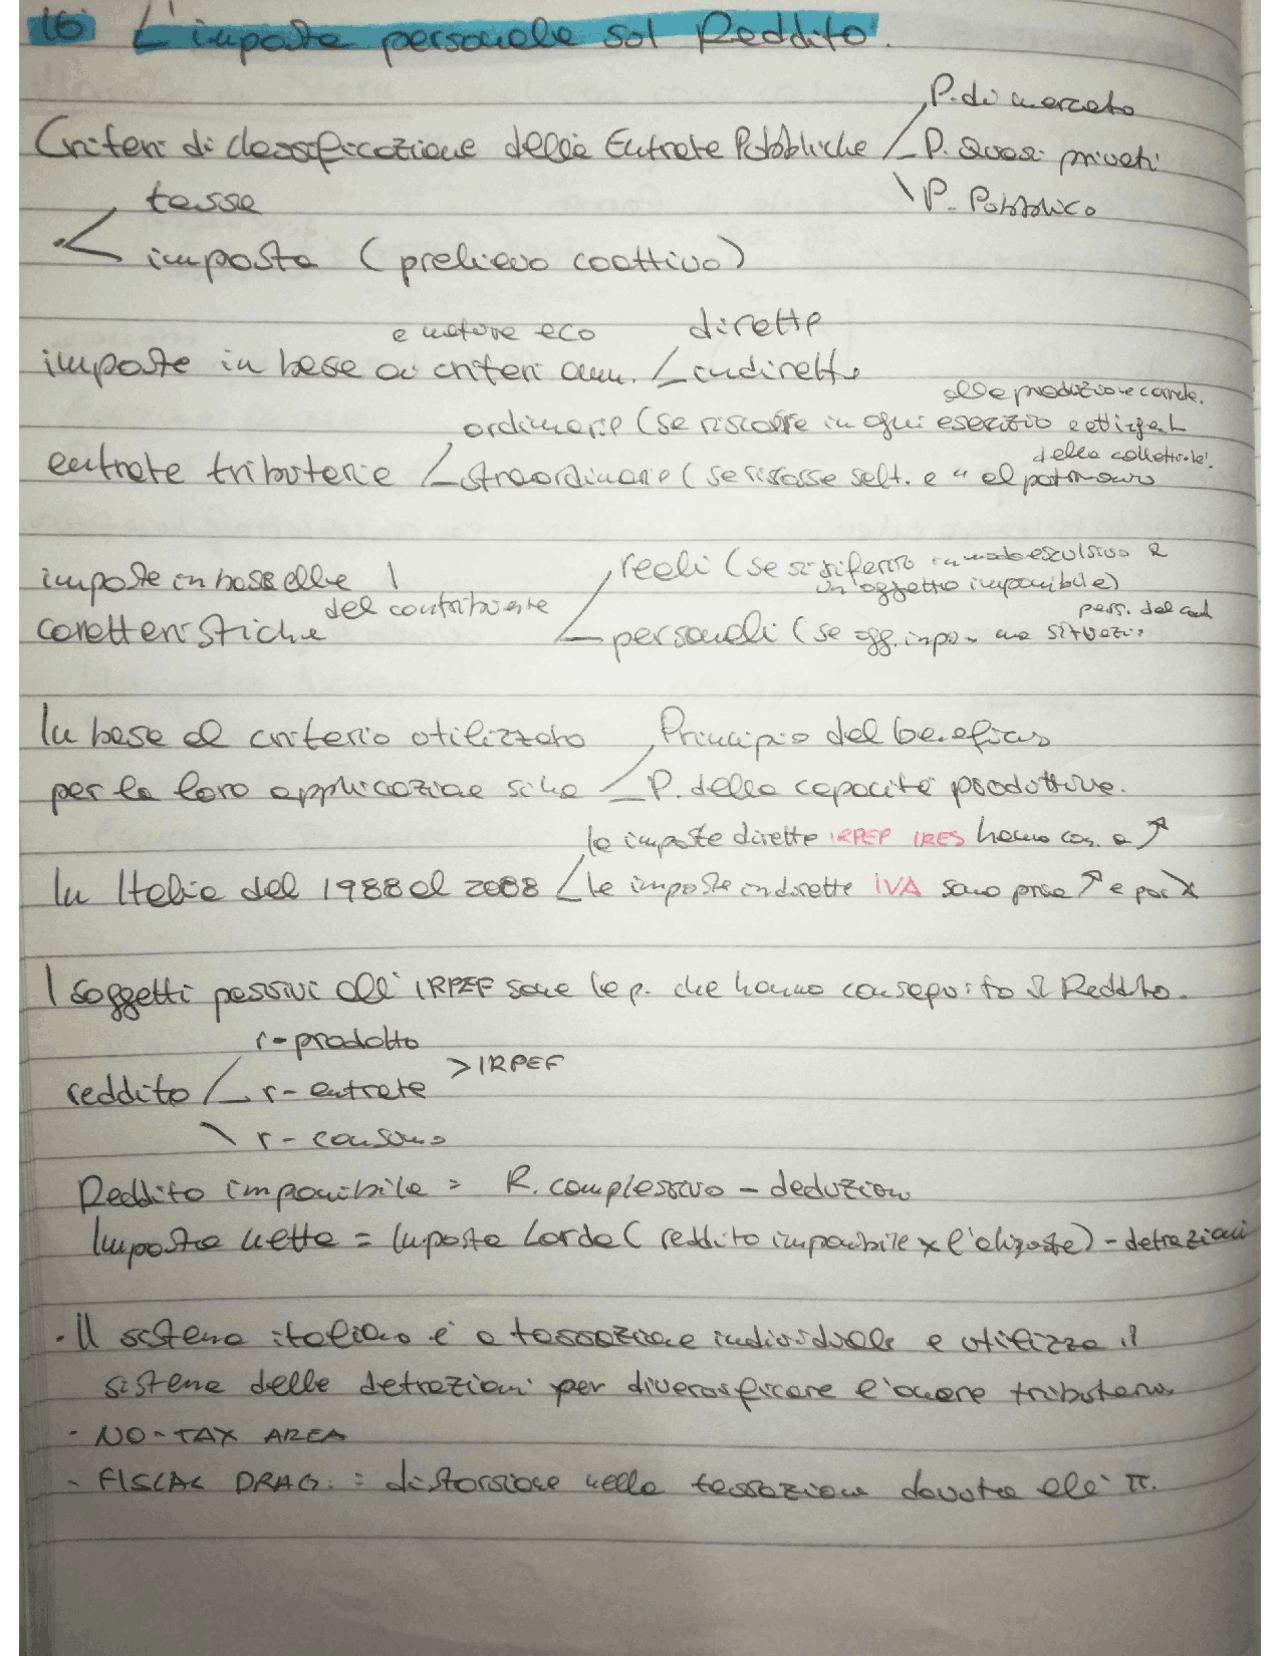 16 L'imposta personale sul Reddito.
P. di mercato
Criteri di classificazione delle Entrate Pubbliche P. Quasi privati
P. Pubblico
tasse
imposta (prelievo coattivo)
e natura eco dirette
imposte in base ai criteri amm. indirette
alla produzione corrente.
ordinarie (se riscosse in ogni esercizio e attinget
entrate tributarie straordinarie (se riscosse salt. e " al patrimonio
della collettività.
imposte in base alle reali (se si riferiro in modo esculsivo a
un oggetto imponibile)
caratteristiche del contribuente
personali (se ogg. impo. situazi.
pers. del cont
In base al criterio utilizzato Principio del beneficio
per la loro applicazione si ha P. della capacità produttiva.
le imposte dirette IRPEF IRES hanno con. a ↗
In Italia dal 1988 al 2008 le imposte indirette IVA sono prima ↗ e poi ↘
I soggetti passivi all'IRPEF sono le p. che hanno conseguito il Reddito.
r-prodotto
reddito r-entrata > IRPEF
r-consumo
Reddito imponibile = R. complessivo - deduzioni
Imposta netta = Imposta Lorda ( reddito imponibile x l'aliquota) - detrazioni
· Il sistema italiano è a tassazione individuale e utilizza il
sistema delle detrazioni per diversificare l'onere tributario.
- NO-TAX AREA
- FISCAL DRAG: = distorsione nella tassazione dovuta all' π.